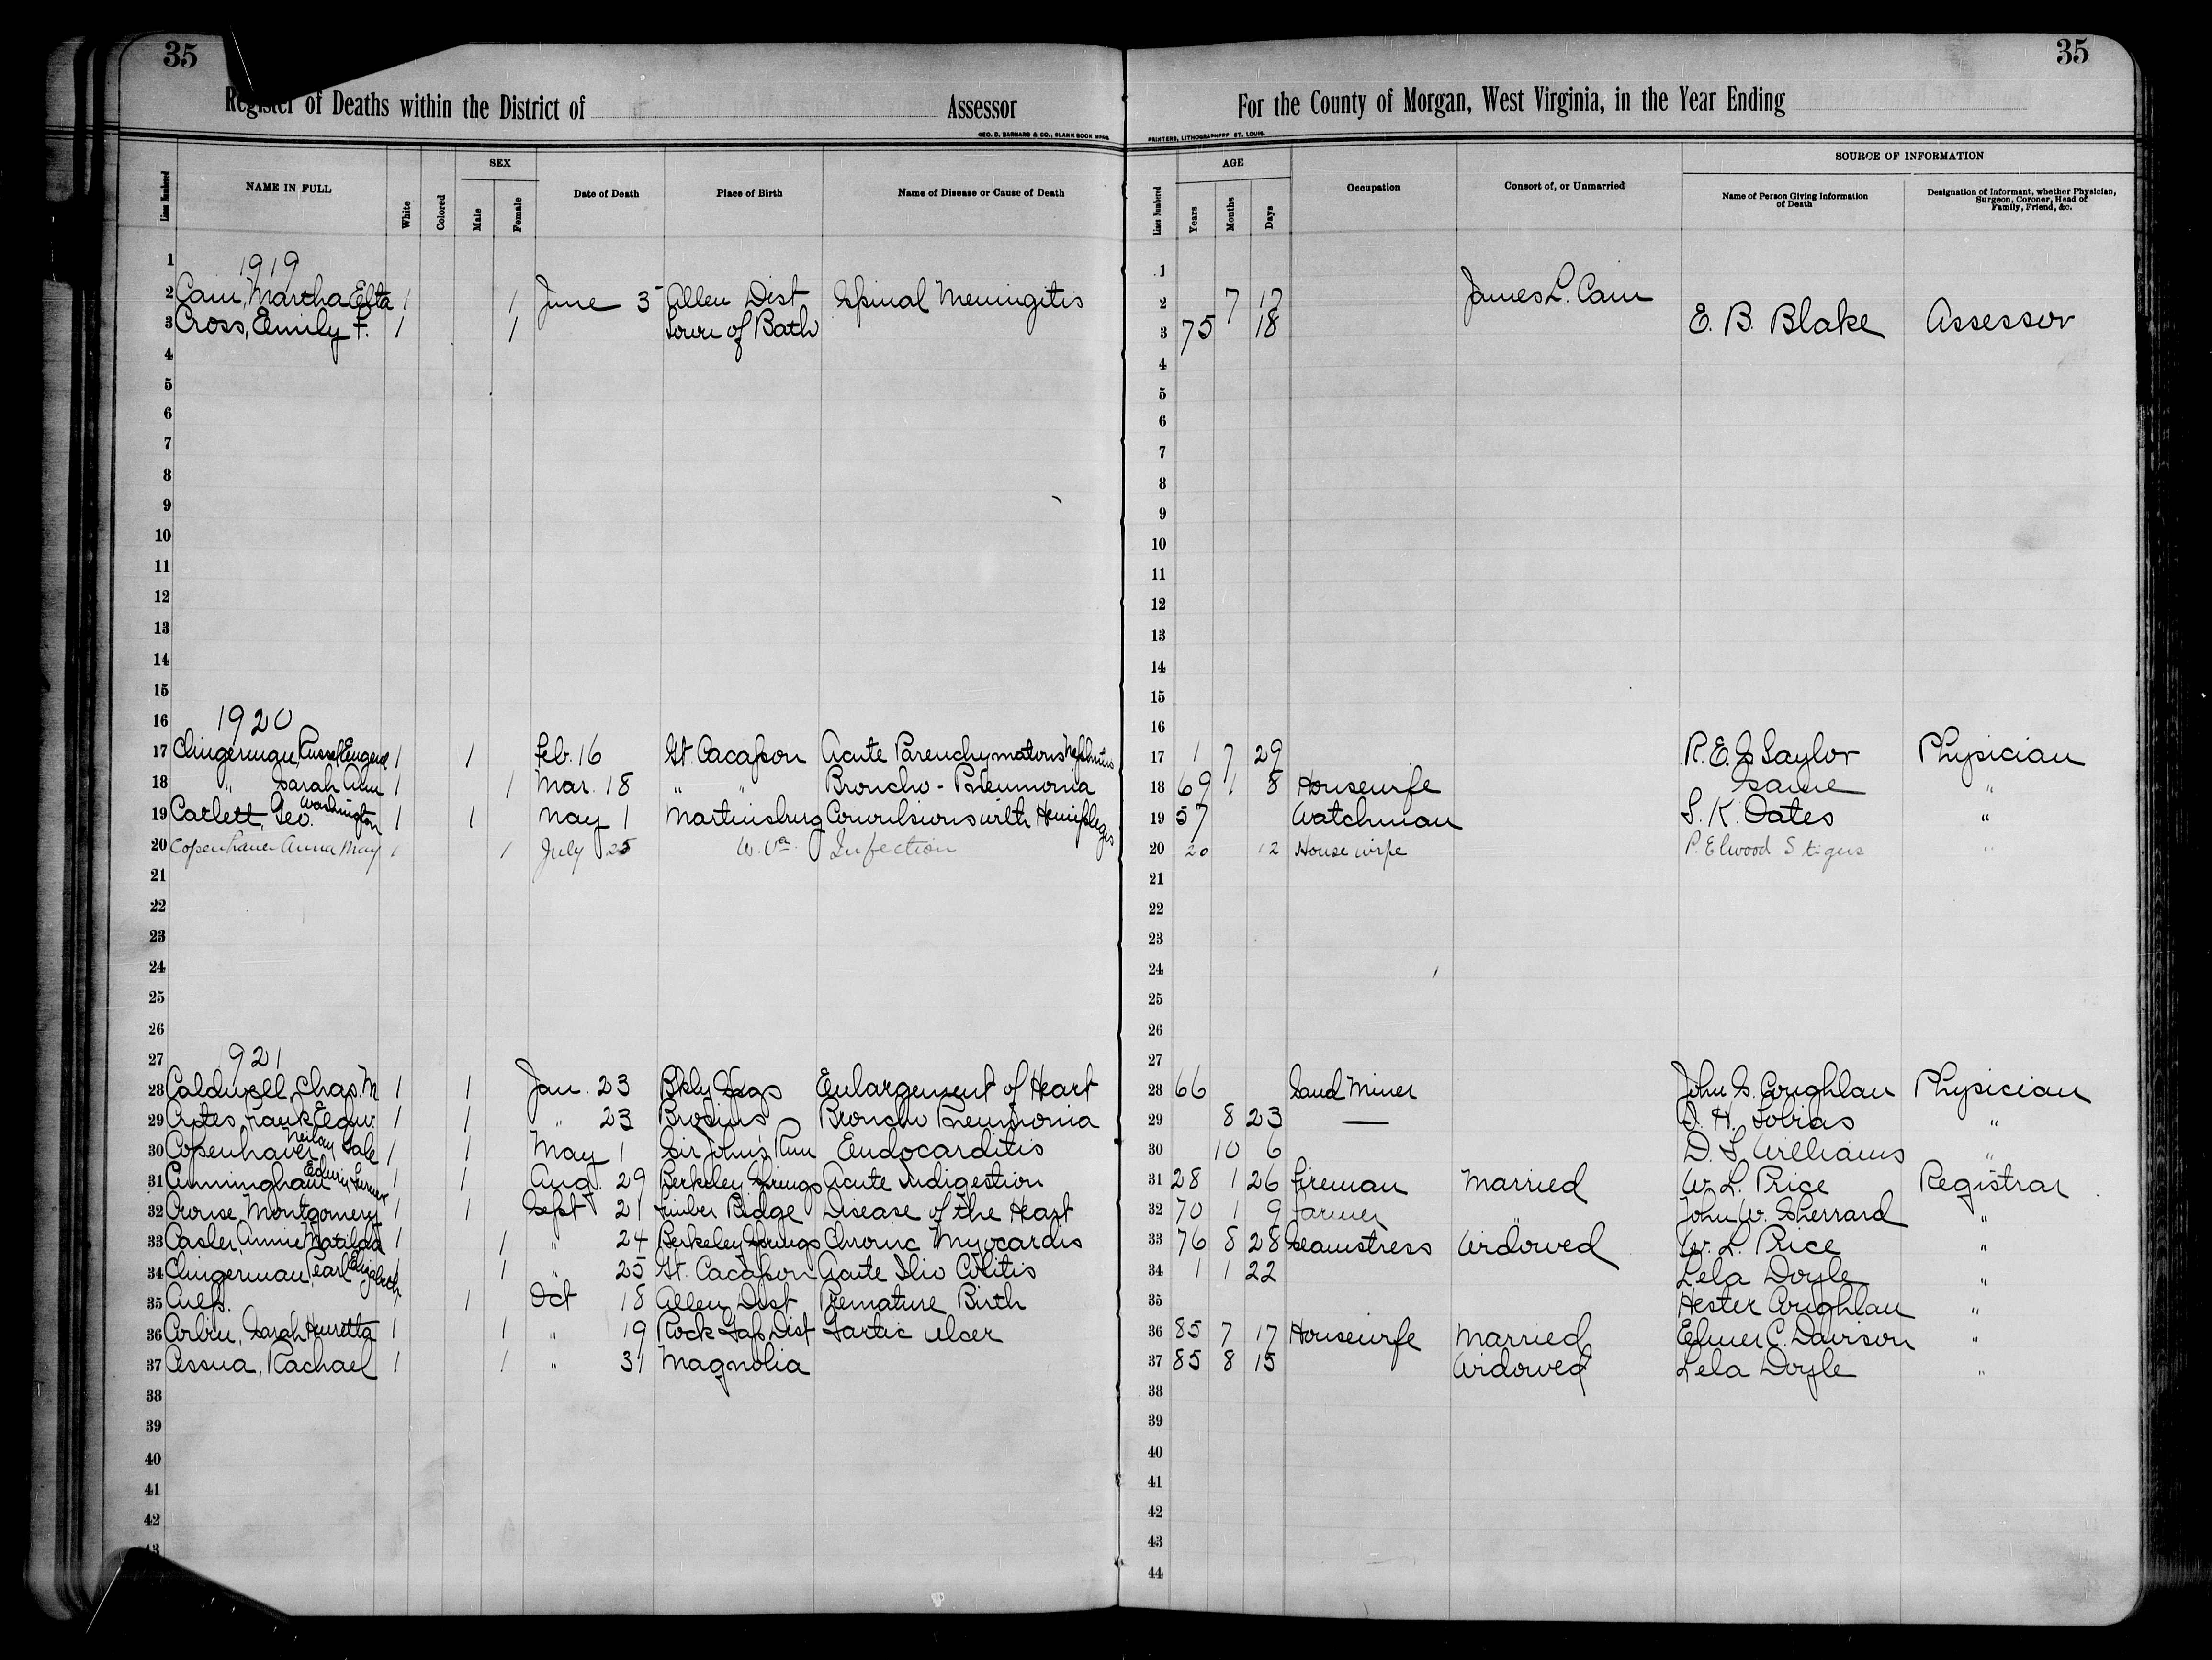 35
35
Register of Deaths within the District of Assessor
For the County of Morgan, West Virginia, in the Year Ending
GEO. D. BARNARD & CO., BLANK BOOK MFGRS.
PRINTERS, LITHOGRAPHERS ST. LOUIS.
Lines Numbered NAME IN FULL White Colored SEX Male Female Date of Death Place of Birth Name of Disease or Cause of Death
Lines Numbered AGE Years Months Days Occupation Consort of, or Unmarried SOURCE OF INFORMATION Name of Person Giving Information of Death Designation of Informant, whether Physician, Surgeon, Coroner, Head of Family, Friend, &c.
1 1919 1
2 Cain, Martha Etta 1 1 June 3 Allen Dist Spinal Meningitis 2 7 17 James L. Cain
3 Cross, Emily F. 1 1 Town of Bath 3 75 18 E. B. Blake Assessor
4 4
5 5
6 6
7 7
8 8
9 9
10 10
11 11
12 12
13 13
14 14
15 15
16 1920 16
17 Clingerman, Russel Eugene 1 1 Feb. 16 Gt. Cacapon Acute Parenchymatous Nephritis 17 1 7 29 R. E. S Saylor Physician
18 " Sarah Ann 1 1 Mar. 18 " " Broncho - Pneumonia 18 69 1 8 Housewife Same "
19 Catlett, Geo. Washington 1 1 May 1 Martinsburg Convulsions with Hemiplegis 19 57 Watchman S. K. Oates "
20 Copenhaver Anna May 1 1 July 25 W. Va. Infection 20 20 12 House wife P. Elwood Stigers "
21 21
22 22
23 23
24 24
25 25
26 26
27 1921 27
28 Caldwell, Chas. M 1 1 Jan. 23 Bkly Spgs Enlargement of Heart 28 66 Sand Miner John S. Coughlan Physician
29 Frank 1 1 " 23 Brosius Broncho Pneumonia 29 8 23 — H. Tobias "
30 Copenhaver Gale 1 1 May 1 Sir John's Run Endocarditis 30 10 6 D. S. Williams "
31 Cunningham Edwin Turner 1 1 Aug. 29 Berkeley Springs Acute Indigestion 31 28 1 26 Fireman Married W. L. Price Registrar
32 Crouse, Montgomery 1 1 Sept 21 Timber Ridge Disease of the Heart 32 70 1 9 Farmer " John W. Sherrard "
33 Casler, Annie Matilda 1 1 " 24 Berkeley Springs Chronic Myocardis 33 76 8 28 Seamstress Widowed W. L. Price "
34 Clingerman, Pearl Elizabeth 1 1 " 25 Gt. Cacapon Acute Ilio Colitis 34 1 1 22 Lela Doyle "
35 1 1 Oct 18 Allen Dist Premature Birth 35 Hester Coughlan "
36 Corbin, Sarah Henretta 1 1 " 19 Rock Gap Dist Gastic Ulcer 36 85 7 17 Housewife Married Elmer C. Davison "
37 Rachael 1 1 " 31 Magnolia 37 85 8 15 Widowed Lela Doyle "
38 38
39 39
40 40
41 41
42 42
43 43
44